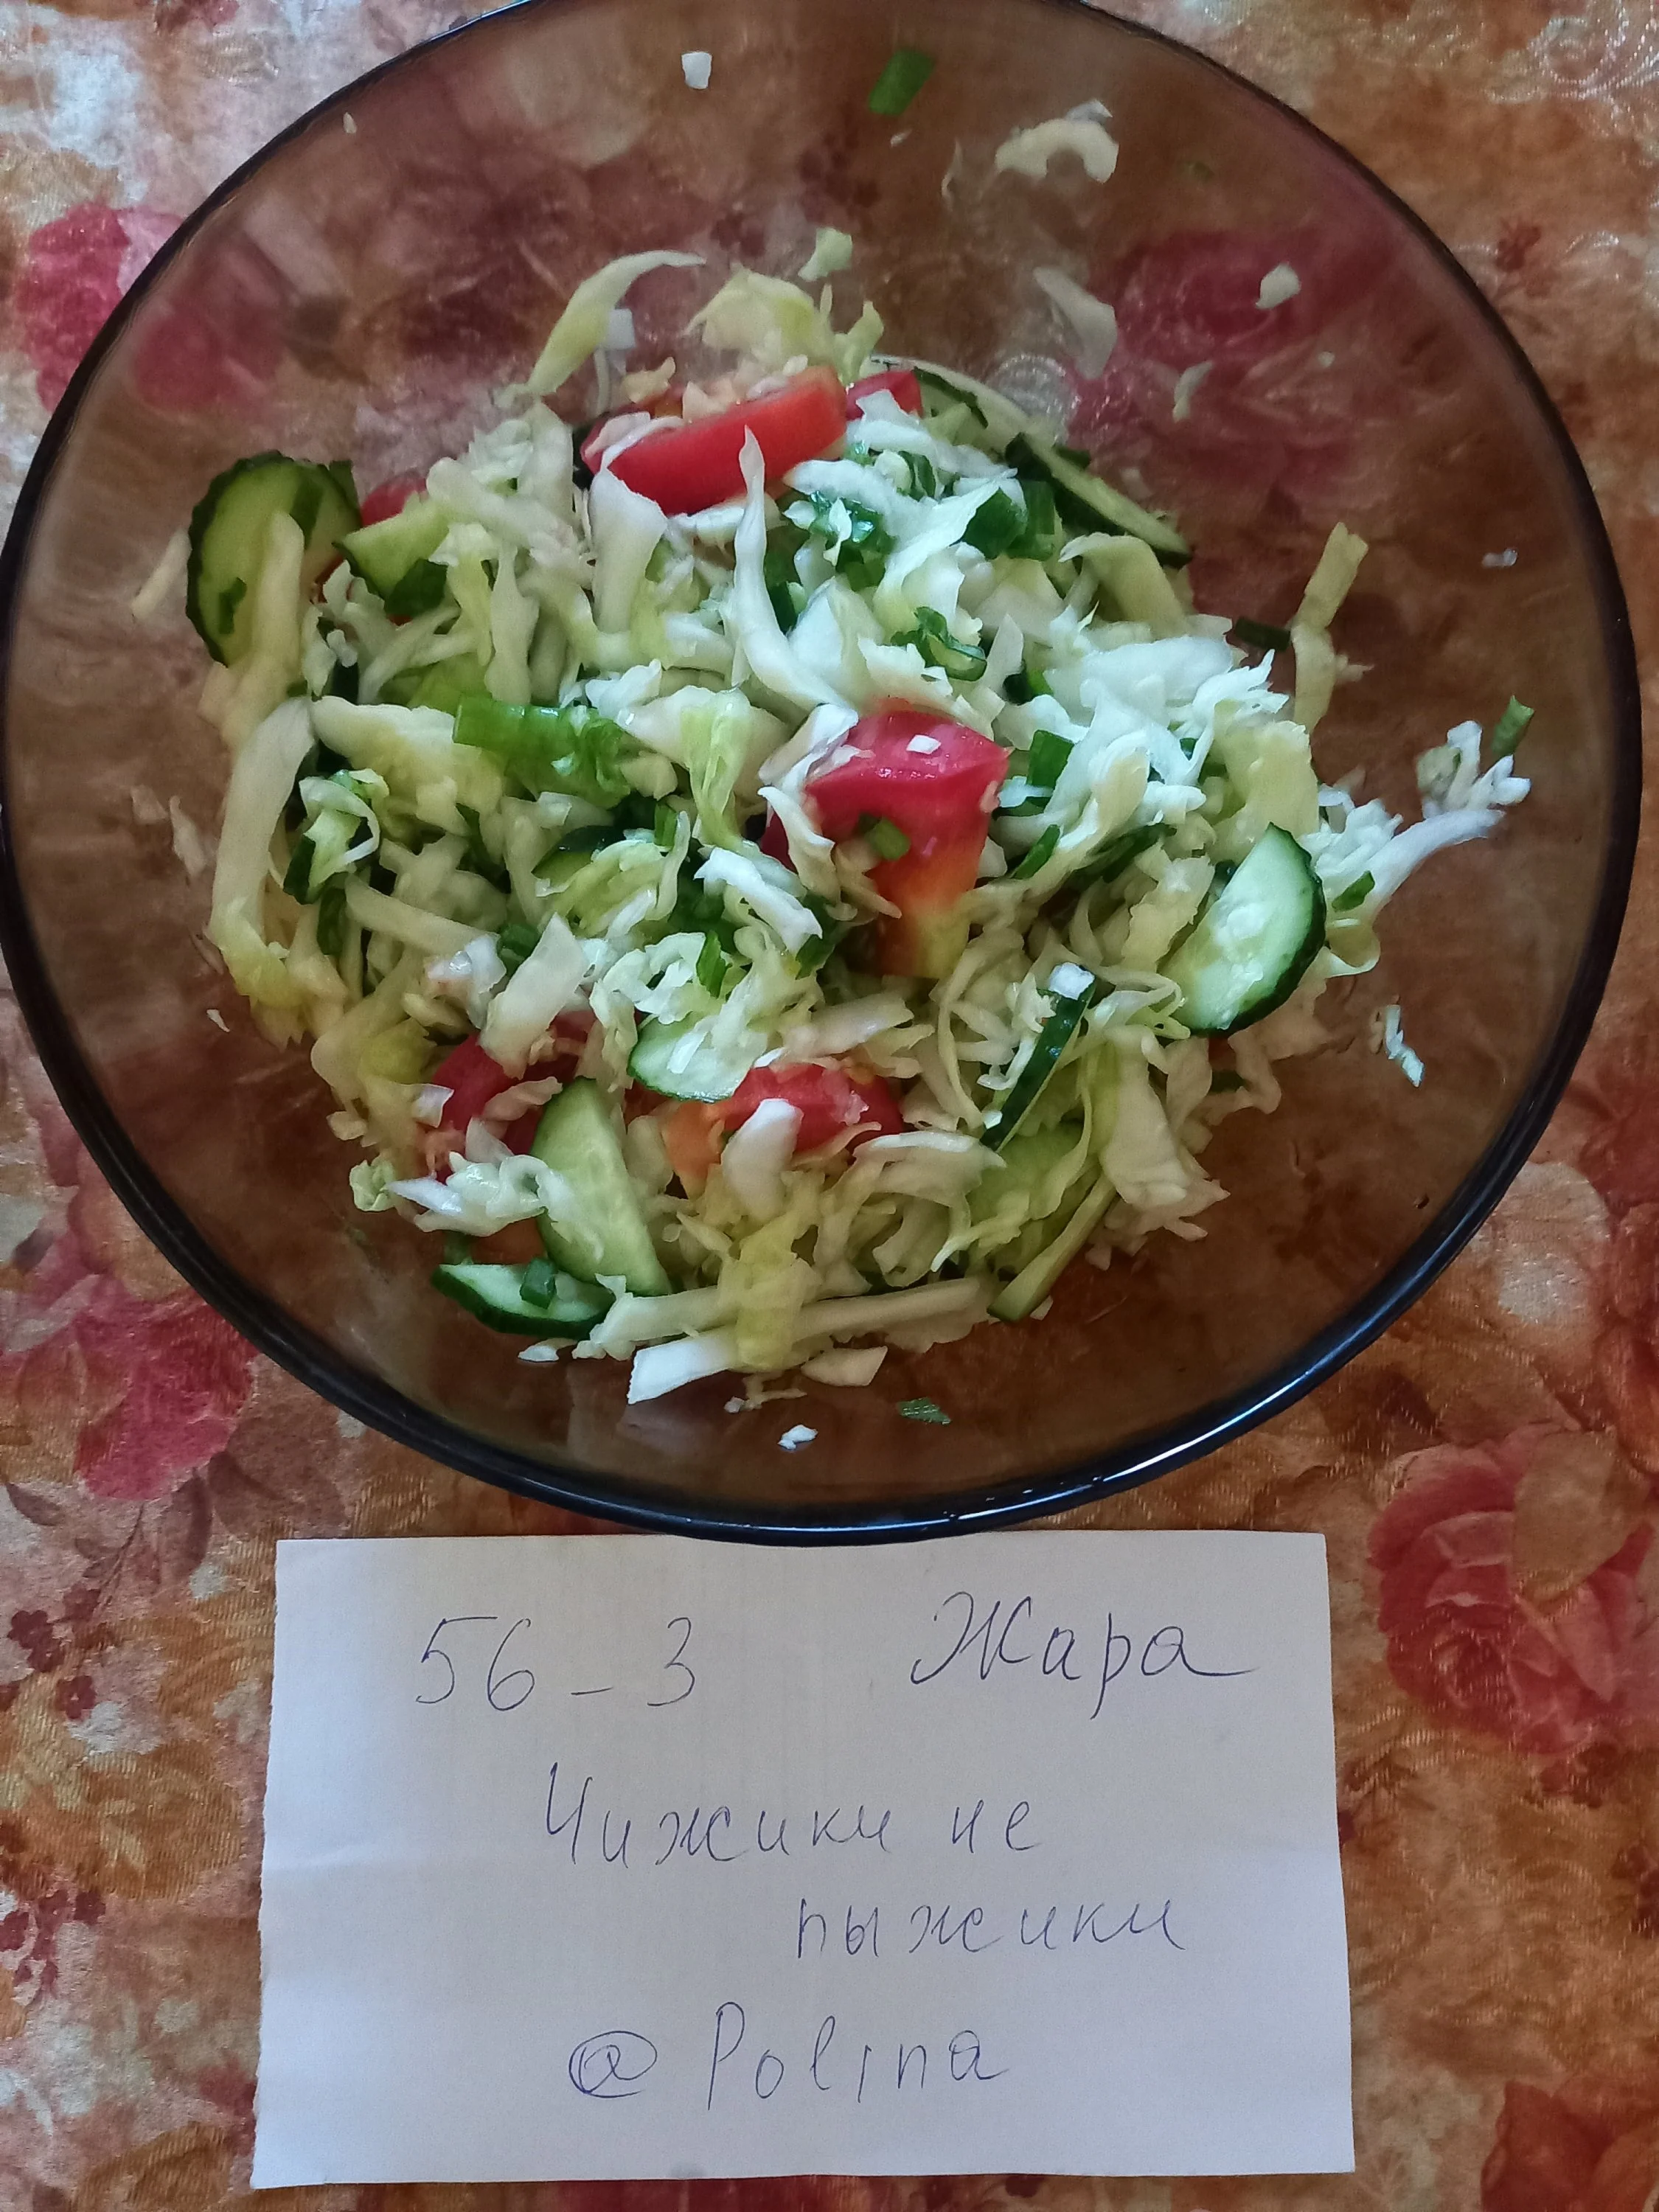 56-3 Жара
Чижики не
пыжики
@Polina